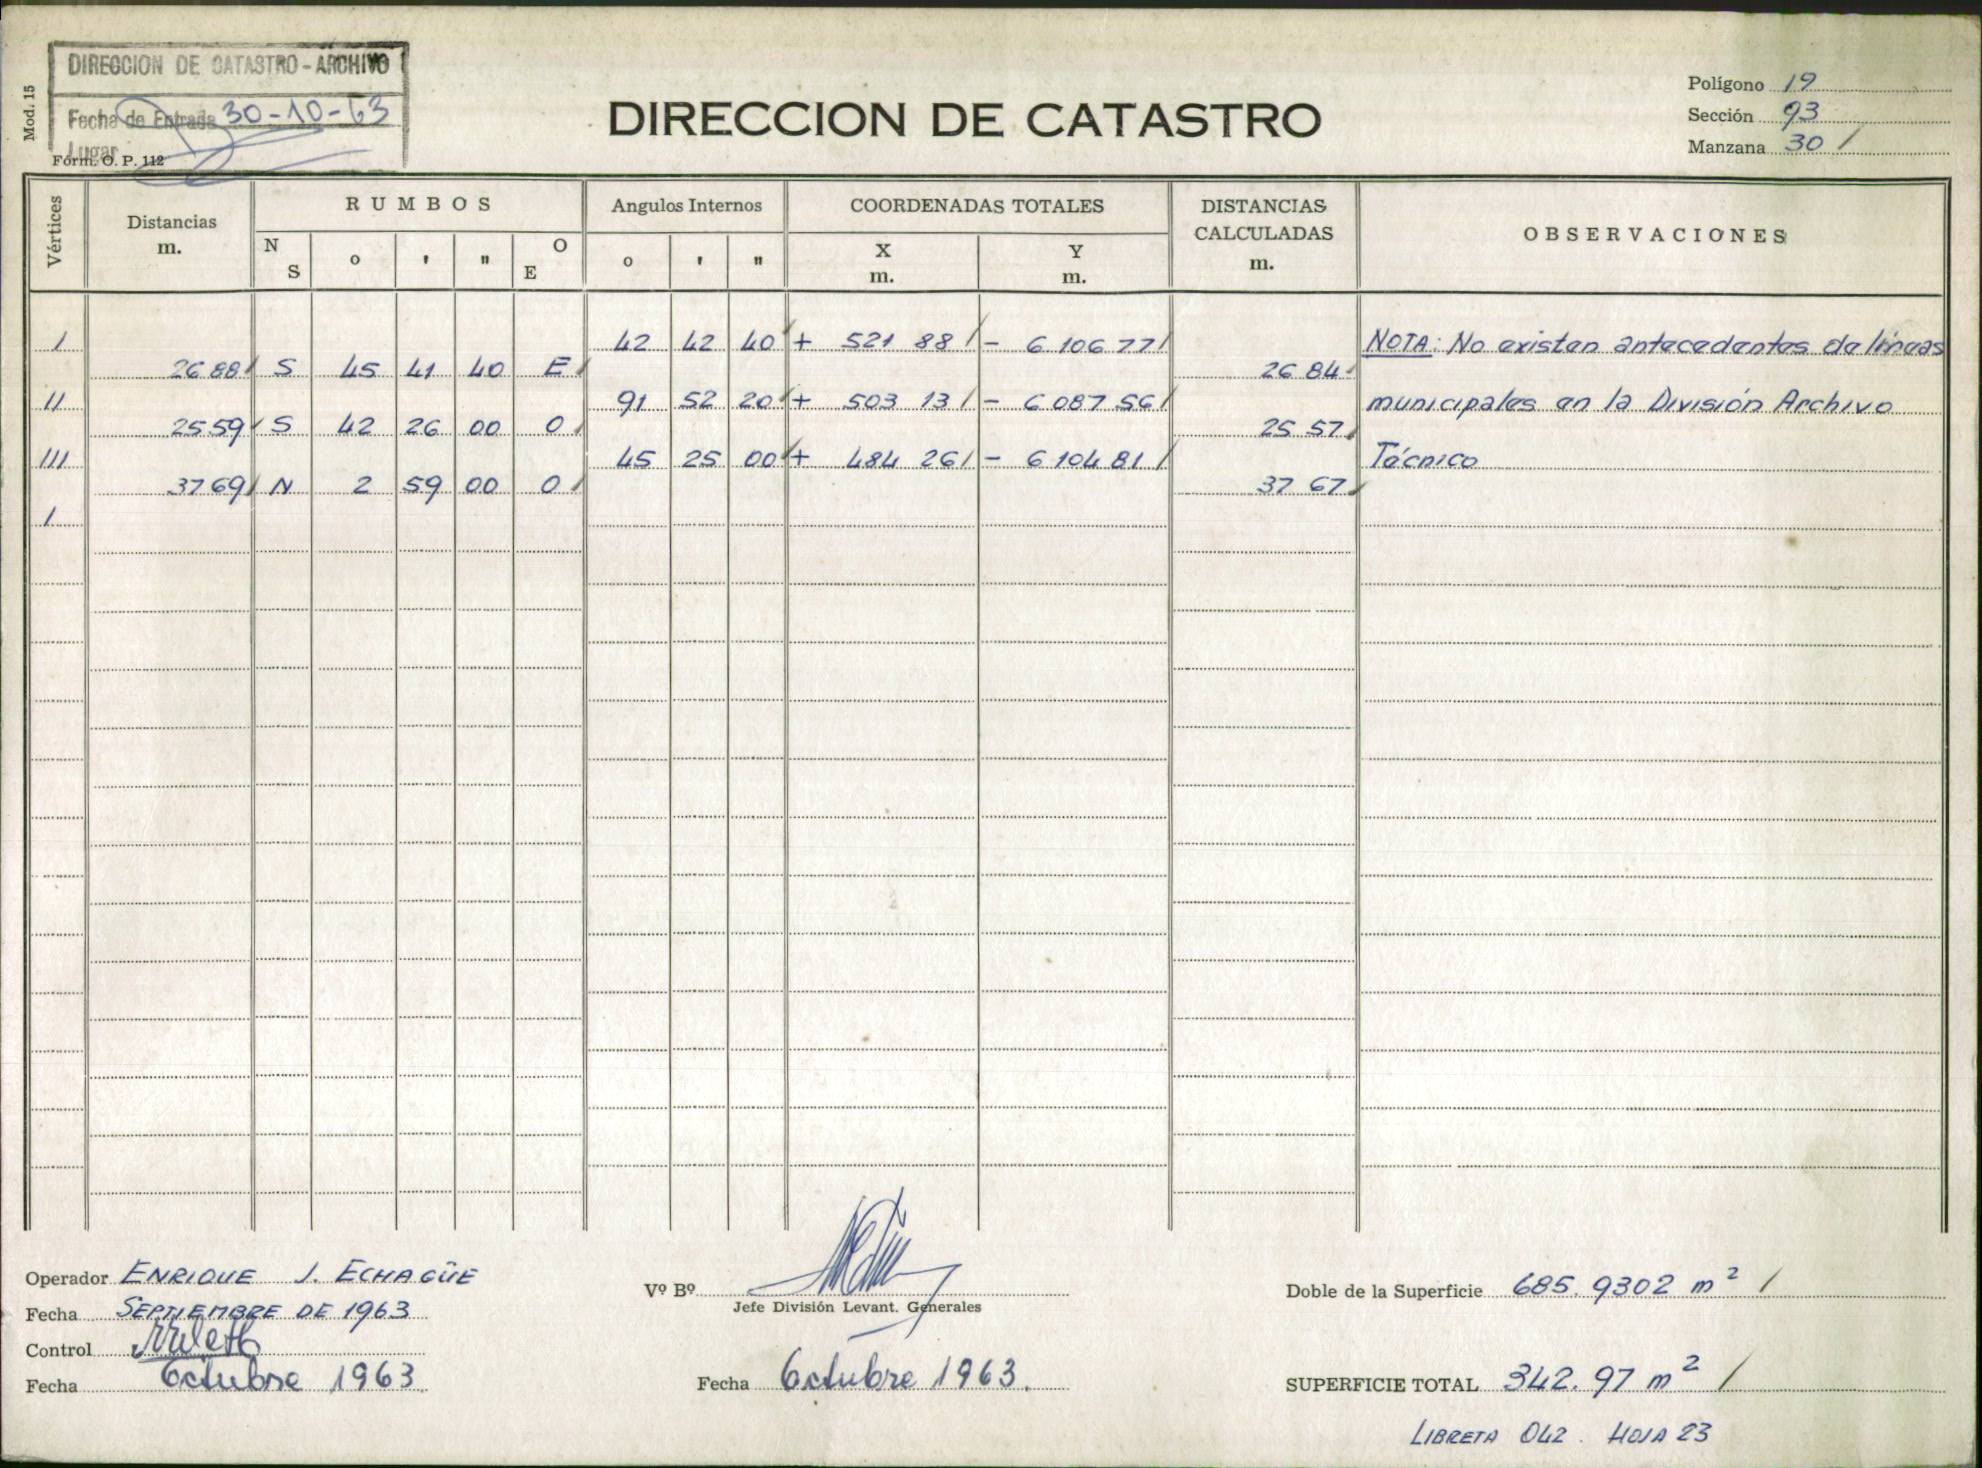 DIRECCION DE CATASTRO - ARCHIVO
Fecha de Entrada 30-10-63
Lugar
Mod. 15
Fórm. O. P. 112
DIRECCION DE CATASTRO
Polígono 19
Sección 93
Manzana 30 /
Vértices Distancias m. RUMBOS Angulos Internos COORDENADAS TOTALES DISTANCIAS CALCULADAS m. OBSERVACIONES
N S o ' " O E o ' " X m. Y m.
I 42 42 40 + 521 88 / - 6 106 77 / NOTA: No existen antecedentes de líneas
26 88 / S 45 41 40 E / 26 84 /
II 91 52 20 / + 503 13 / - 6 087 56 / municipales en la División Archivo
25 59 / S 42 26 00 O / 25 57 /
III 45 25 00 / + 484 26 / - 6 104 81 / Técnico
37 69 / N 2 59 00 O / 37 67 /
I
Operador ENRIQUE J. ECHAGÜE
Fecha SEPTIEMBRE DE 1963
Control
Fecha Octubre 1963
Vº Bº
Jefe División Levant. Generales
Fecha Octubre 1963.
Doble de la Superficie 685.9302 m² /
SUPERFICIE TOTAL 342.97 m² /
LIBRETA 042. HOJA 23